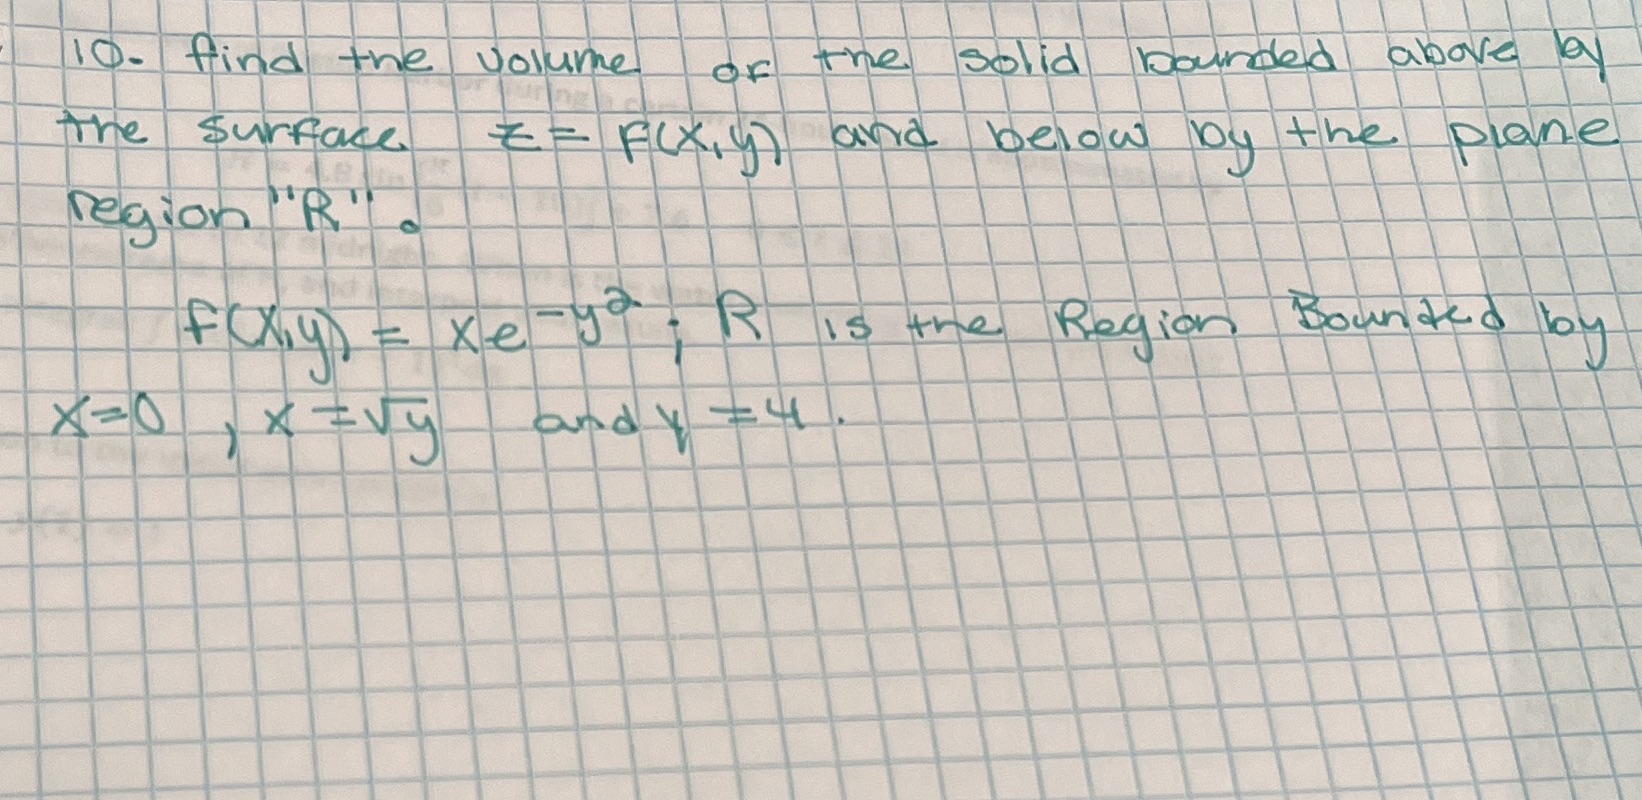 10. find the volume of the solid bounded above by
the surface z = f(x,y) and below by the plane
region "R".
f(x,y) = xe^-y²; R is the Region Bounded by
x=0, x=√y and y=4.